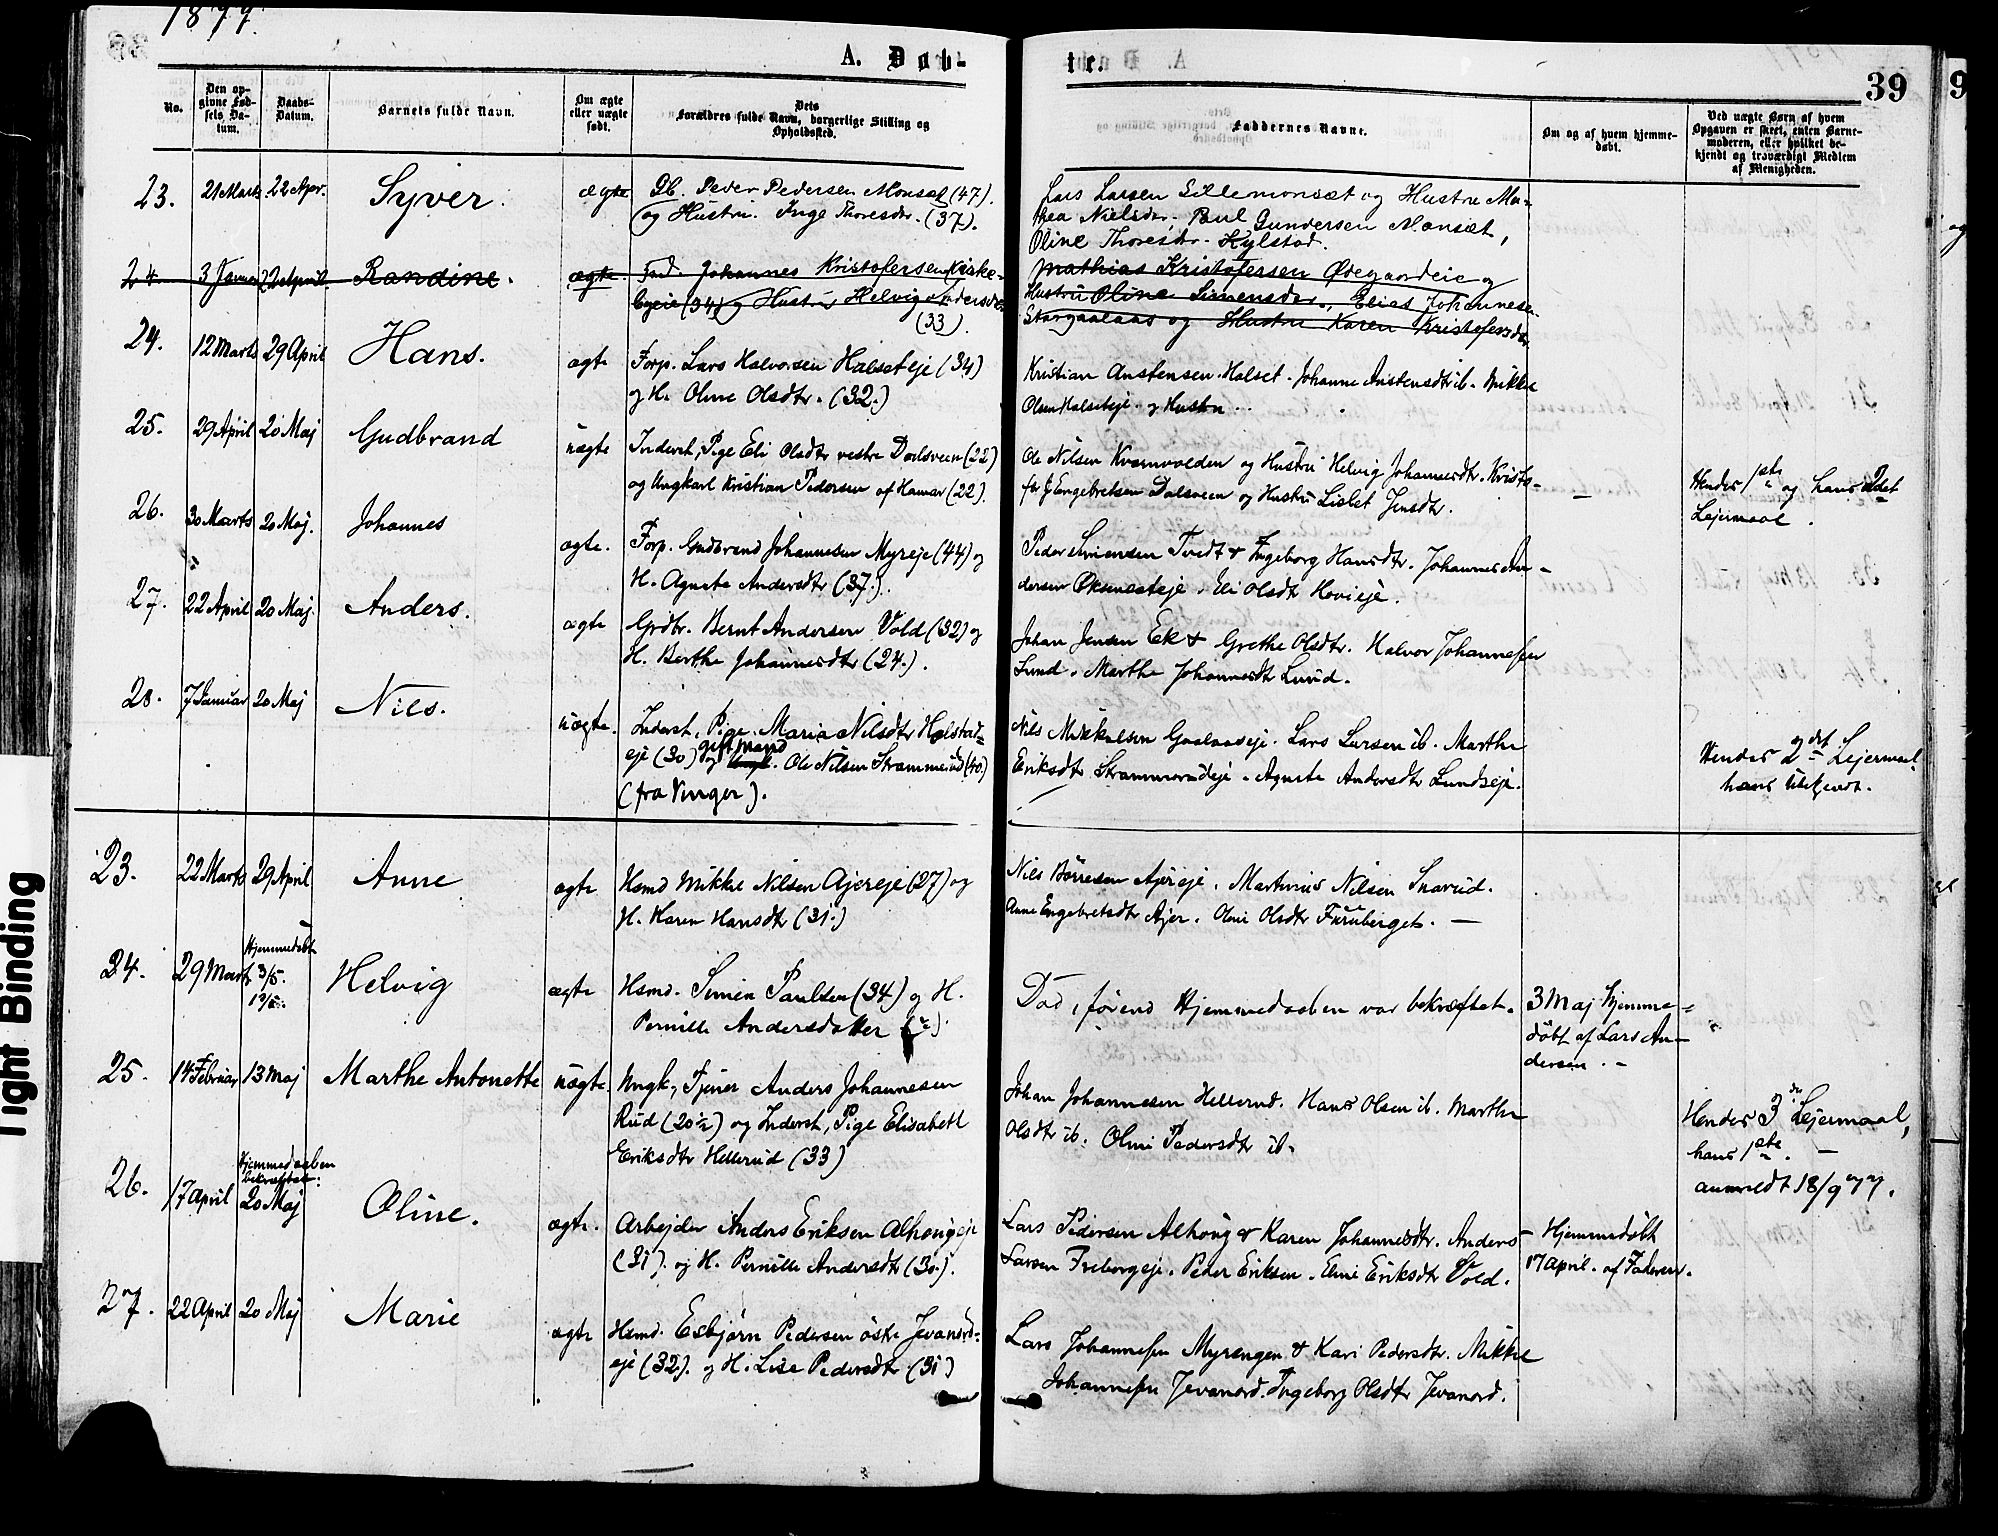 1877.
A. Døb-
te.
39
No.
Den op-
givne Fød-
sels Da-
tum.
Daabs-
Datum.
Barnets fulde Navn.
Om ægte
eller uægte
født.
Dets
Forældres fulde Navn, borgerlige Stilling og
Opholdssted.
Faddernes Navne.
Om og af hvem hjemme-
døbt.
Ved uægte Børn af hvem
Opgaven er skeet, enten Barne-
moderen, eller hvilket be-
kjendt og troværdigt Medlem
af Menigheden.
23. 21 Marts 22 Apr. Syver. ægte Gb. Peder Pedersen Monset (47).
og Hustru. Inge Thoresdr. (37).
Lars Larsen Sillemonsæt og Hustru Ma-
thea Nielsdr. Paul Gundersen Monsæt,
Oline Thoresdr. Kylstad.
24. 3 Januar 22 April Randine. ægte Johannes Kristofersen Kirke-
byeie (34) og Hustru Helvig Andersdr
(33).
Mathias Kristofersen Ødegaardeie og
Hustru Oline Simensdr., Elias Johannesen
Storgaalaas og Hustru Karen Kristofersdr.
24. 12 Marts 29 April Hans. ægte Forp. Lars Halvorsen Halseteje (34)
og H. Oline Olsdtr. (32.)
Kristian Anstensen Halset. Johanne Anstensdtr ib. Mikkel
Olsen Halseteje og Hustru.
25. 29 April 20 Maj Gudbrand uægte Inderst, Pige Eli Olsdtr vestre Dalsveen (22)
og Ungkarl Kristian Pedersen af Hamar (22).
Ole Nilsen Kvernvolden og Hustru Helvig Johannesdtr. Kristo-
fer Engebretsen Dalsveen og Hustru Lisbet Jensdtr.
Hendes 1ste og hans 2det
Lejermaal.
26. 30 Marts 20 Maj. Johannes ægte. Forp. Gudbrand Johannesen Myreje (44) og
H. Agnete Andersdtr (37.).
Peder Simensen Tvedt & Ingeborg Hansdtr. Johannes An-
dersen Øksneseteje. Eli Olsdtr Hovieje.
27. 22 April 20 Maj. Anders. ægte Grdbr. Bernt Andersen Vold (32) og
H. Berthe Johannesdtr (24.).
Johan Jensen Ek & Grethe Olsdtr. Halvor Johannesen
Lund. Marthe Johannesdtr Lund.
28. 7 Januar 20 Maj Nils. uægte. Inderst, Pige. Maria Nilsdtr Holstad-
eje (30) og gift Mand Ole Nilsen Strammerud (40.)
(fra Vinger).
Nils Mikkelsen Gaalaaseje. Lars Larsen ib. Marthe
Eriksdtr Strammerudeje. Agnete Andersdtr Lundseje.
Hendes 2 og det Lejermaal
hans ubekjendt.
23. 22 Marts 29 April Anne ægte Hsmd Mikkel Nilsen Ajereje (27) og
H. Karen Hansdtr (31.)
Nils Børresen Ajereje. Martinus Nilsen Snarud.
Anne Engebretsdtr Ajer. Oline Olsdtr Furuberget.
24. 29 Marts Hjemmedøbt
3/5.
Helvig ægte Hsmd. Simen Paulsen (34) og H.
Pernille Andersdatter
Død, førend Hjemmedaaben var bekræftet.
3 Maj hjemme-
døbt af Lars An-
dersen.
25. 14 Februar 13 Maj Marthe Antonette uægte. Ungk, Tjener Anders Johannesen
Rud (20½) og Inderst, Pige Elisabeth
Eriksdtr Hellerud (33)
Johan Johannesen Hellerud. Hans Olsen ib. Marthe
Olsdtr ib. Oline Pedersdtr ib.
Hendes 3die Lejermaal,
hans 1ste.
anmeldt 18/9 77.
26. 17 April Hjemmedaaben
bekræftet:
20 Maj Oline. ægte. Arbejder Anders Eriksen Alhongeje
(31). og H. Pernille Andersdtr (30.).
Lars Pedersen Alhong & Karen Johannesdtr. Anders
Larsen Freborgeje. Peder Eriksen. Eline Eriksdtr Vold.
Hjemmedøbt
17 April. af Faderen.
27. 22 April 20 Maj Marie ægte Hsmd. Esbjørn Pedersen østre Jevanord-
eje (32). og H. Lise Pedersdtr (31)
Lars Johannesen Myrengen & Kari Pedersdtr. Mikkel
Johannesen Jevanord. Ingeborg Olsdtr Jevanord.
Tight Binding